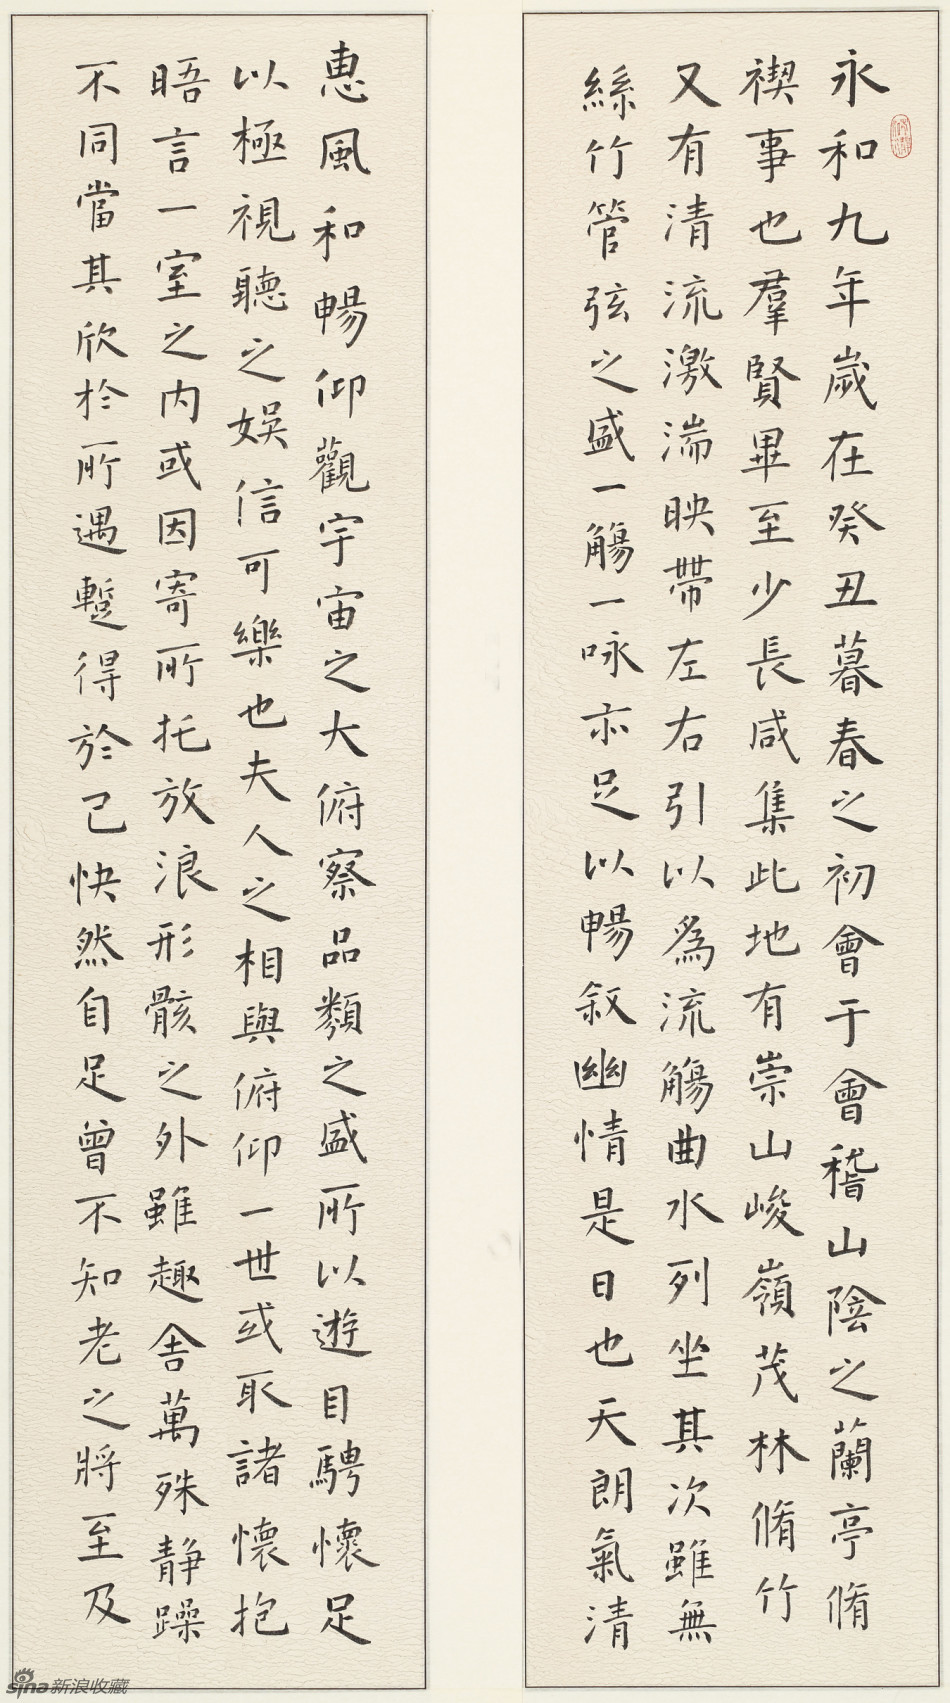 永和九年歲在癸丑暮春之初會于會稽山陰之蘭亭脩
禊事也羣賢畢至少長咸集此地有崇山峻嶺茂林脩竹
又有清流激湍映帶左右引以為流觴曲水列坐其次雖無
絲竹管弦之盛一觴一咏亦足以暢叙幽情是日也天朗氣清
惠風和暢仰觀宇宙之大俯察品類之盛所以遊目騁懷足
以極視聽之娛信可樂也夫人之相與俯仰一世或取諸懷抱
晤言一室之內或因寄所托放浪形骸之外雖趣舍萬殊静躁
不同當其欣於所遇蹔得於己快然自足曾不知老之將至及
sina新浪收藏